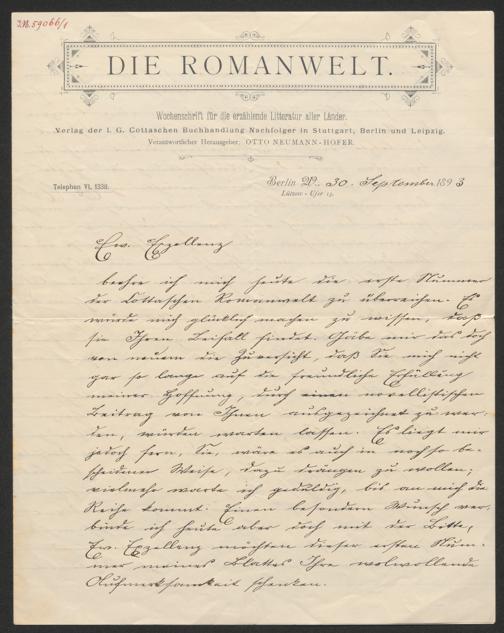 I.N. 59066/1
DIE ROMANWELT.
Wochenschrift für die erzählende Litteratur aller Länder.
Verlag der I. G. Cottaschen Buchhandlung Nachfolger in Stuttgart, Berlin und Leipzig.
Verantwortlicher Herausgeber: OTTO NEUMANN-HOFER.
Telephon VI, 1338.
Berlin W., 30. September 1893
Lützow-Ufer 13.
Ew. Exzellenz
beehre ich mich heute die erste Nummer
der Cottaschen Romanwelt zu überreichen. Es
würde mich glücklich machen zu wissen, daß
sie Ihren Beifall findet. Gäbe mir das doch
von neuem die Zuversicht, daß Sie mich nicht
gar so lange auf die freundliche Erfüllung
meiner Hoffnung, durch einen novellistischen
Beitrag von Ihnen ausgezeichnet zu wer-
den, würden warten lassen. Es liegt mir
jedoch fern, Sie, wäre es auch in noch so be-
scheidener Weise, dazu drängen zu wollen;
vielmehr warte ich geduldig, bis an mich die
Reihe kommt. Einen besondern Wunsch ver-
binde ich heute aber doch mit der Bitte,
Ew. Exzellenz möchten dieser ersten Num-
mer meines Blattes Ihre wolwollende
Aufmerksamkeit schenken.